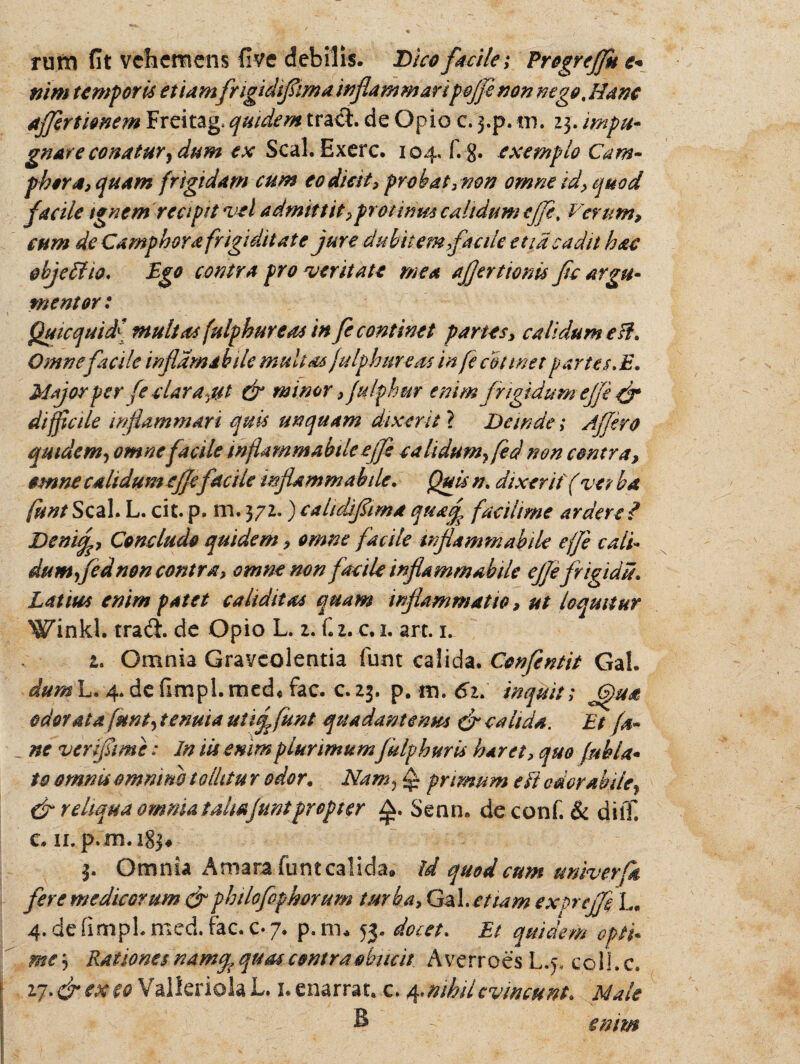 rum fit vehemens five debilis. Dico facile; Progreſſu e-
nim temporis etiam frigidiſſima inflammari poſſe non nego. Hanc
aſſertionem Freitag. quidem tract. de Opio c. 3. p. m. 23. impu-
gnare conatur, dum ex Scal. Exerc. 104. ſ. 8. exemplo Cam-
phoræ, quam frigidam cum eo dicit, probat, non omne id, quod
facile ignem recipit vel admittit, protinus calidum eſſe. Verum,
cum de Camphoræ frigiditate jure dubitem, facile etiā cadit hæc
objectio. Ego contra pro veritate mea aſſertionis ſic argu-
mentor:
Quicquid multas ſulphureas in ſe continet partes, calidum eſt.
Omne facile inflāmabile multas ſulphureas in ſe cōtinet partes. E.
Major per ſe clara, ut & minor, ſulphur enim frigidum eſſe &
difficile inflammari quis unquam dixerit? Deinde; Aſſero
quidem, omne facile inflammabile eſſe calidum, ſed non contra,
omne calidum eſſe facile inflammabile. Quis n. dixerit (verba
ſunt Scal. L. cit. p. m. 372.) calidiſſima quæq; facilime ardere?
Deniq;, Concludo quidem, omne facile inflammabile eſſe cali-
dum, ſed non contra, omne non facile inflammabile eſſe frigidū.
Latius enim patet caliditas quam inflammatio, ut loquitur
Winkl. tract. de Opio L. 2. ſ. 2. c. 1. art. 1.
2. Omnia Graveolentia ſunt calida. Conſentit Gal.
dum L. 4. de ſimpl. med. fac. c. 23. p. m. 62. inquit; Quæ
odorata ſunt, tenuia utiq; ſunt quadantenus & calida. Et ſa-
ne veriſſime: In iis enim plurimum ſulphuris hæret, quo ſubla-
to omnis omnino tollitur odor. Nam, 🜍 primum eſt odorabile,
& reliqua omnia talia ſunt propter 🜍. Senn. de conſ. & diſſ.
c. 11. p. m. 183.
3. Omnia Amara ſunt calida. Id quod cum univerſa
fere medicorum & philoſophorum turba, Gal. etiam expreſſe L.
4. de ſimpl. med. fac. c. 7. p. m. 53. docet. Et quidem opti-
me; Rationes namq; quas contra obiicit Averroës L. 5. coll. c.
27. & ex eo Valleriola L. 1. enarrat. c. 4. nihil evincunt. Male
B enim